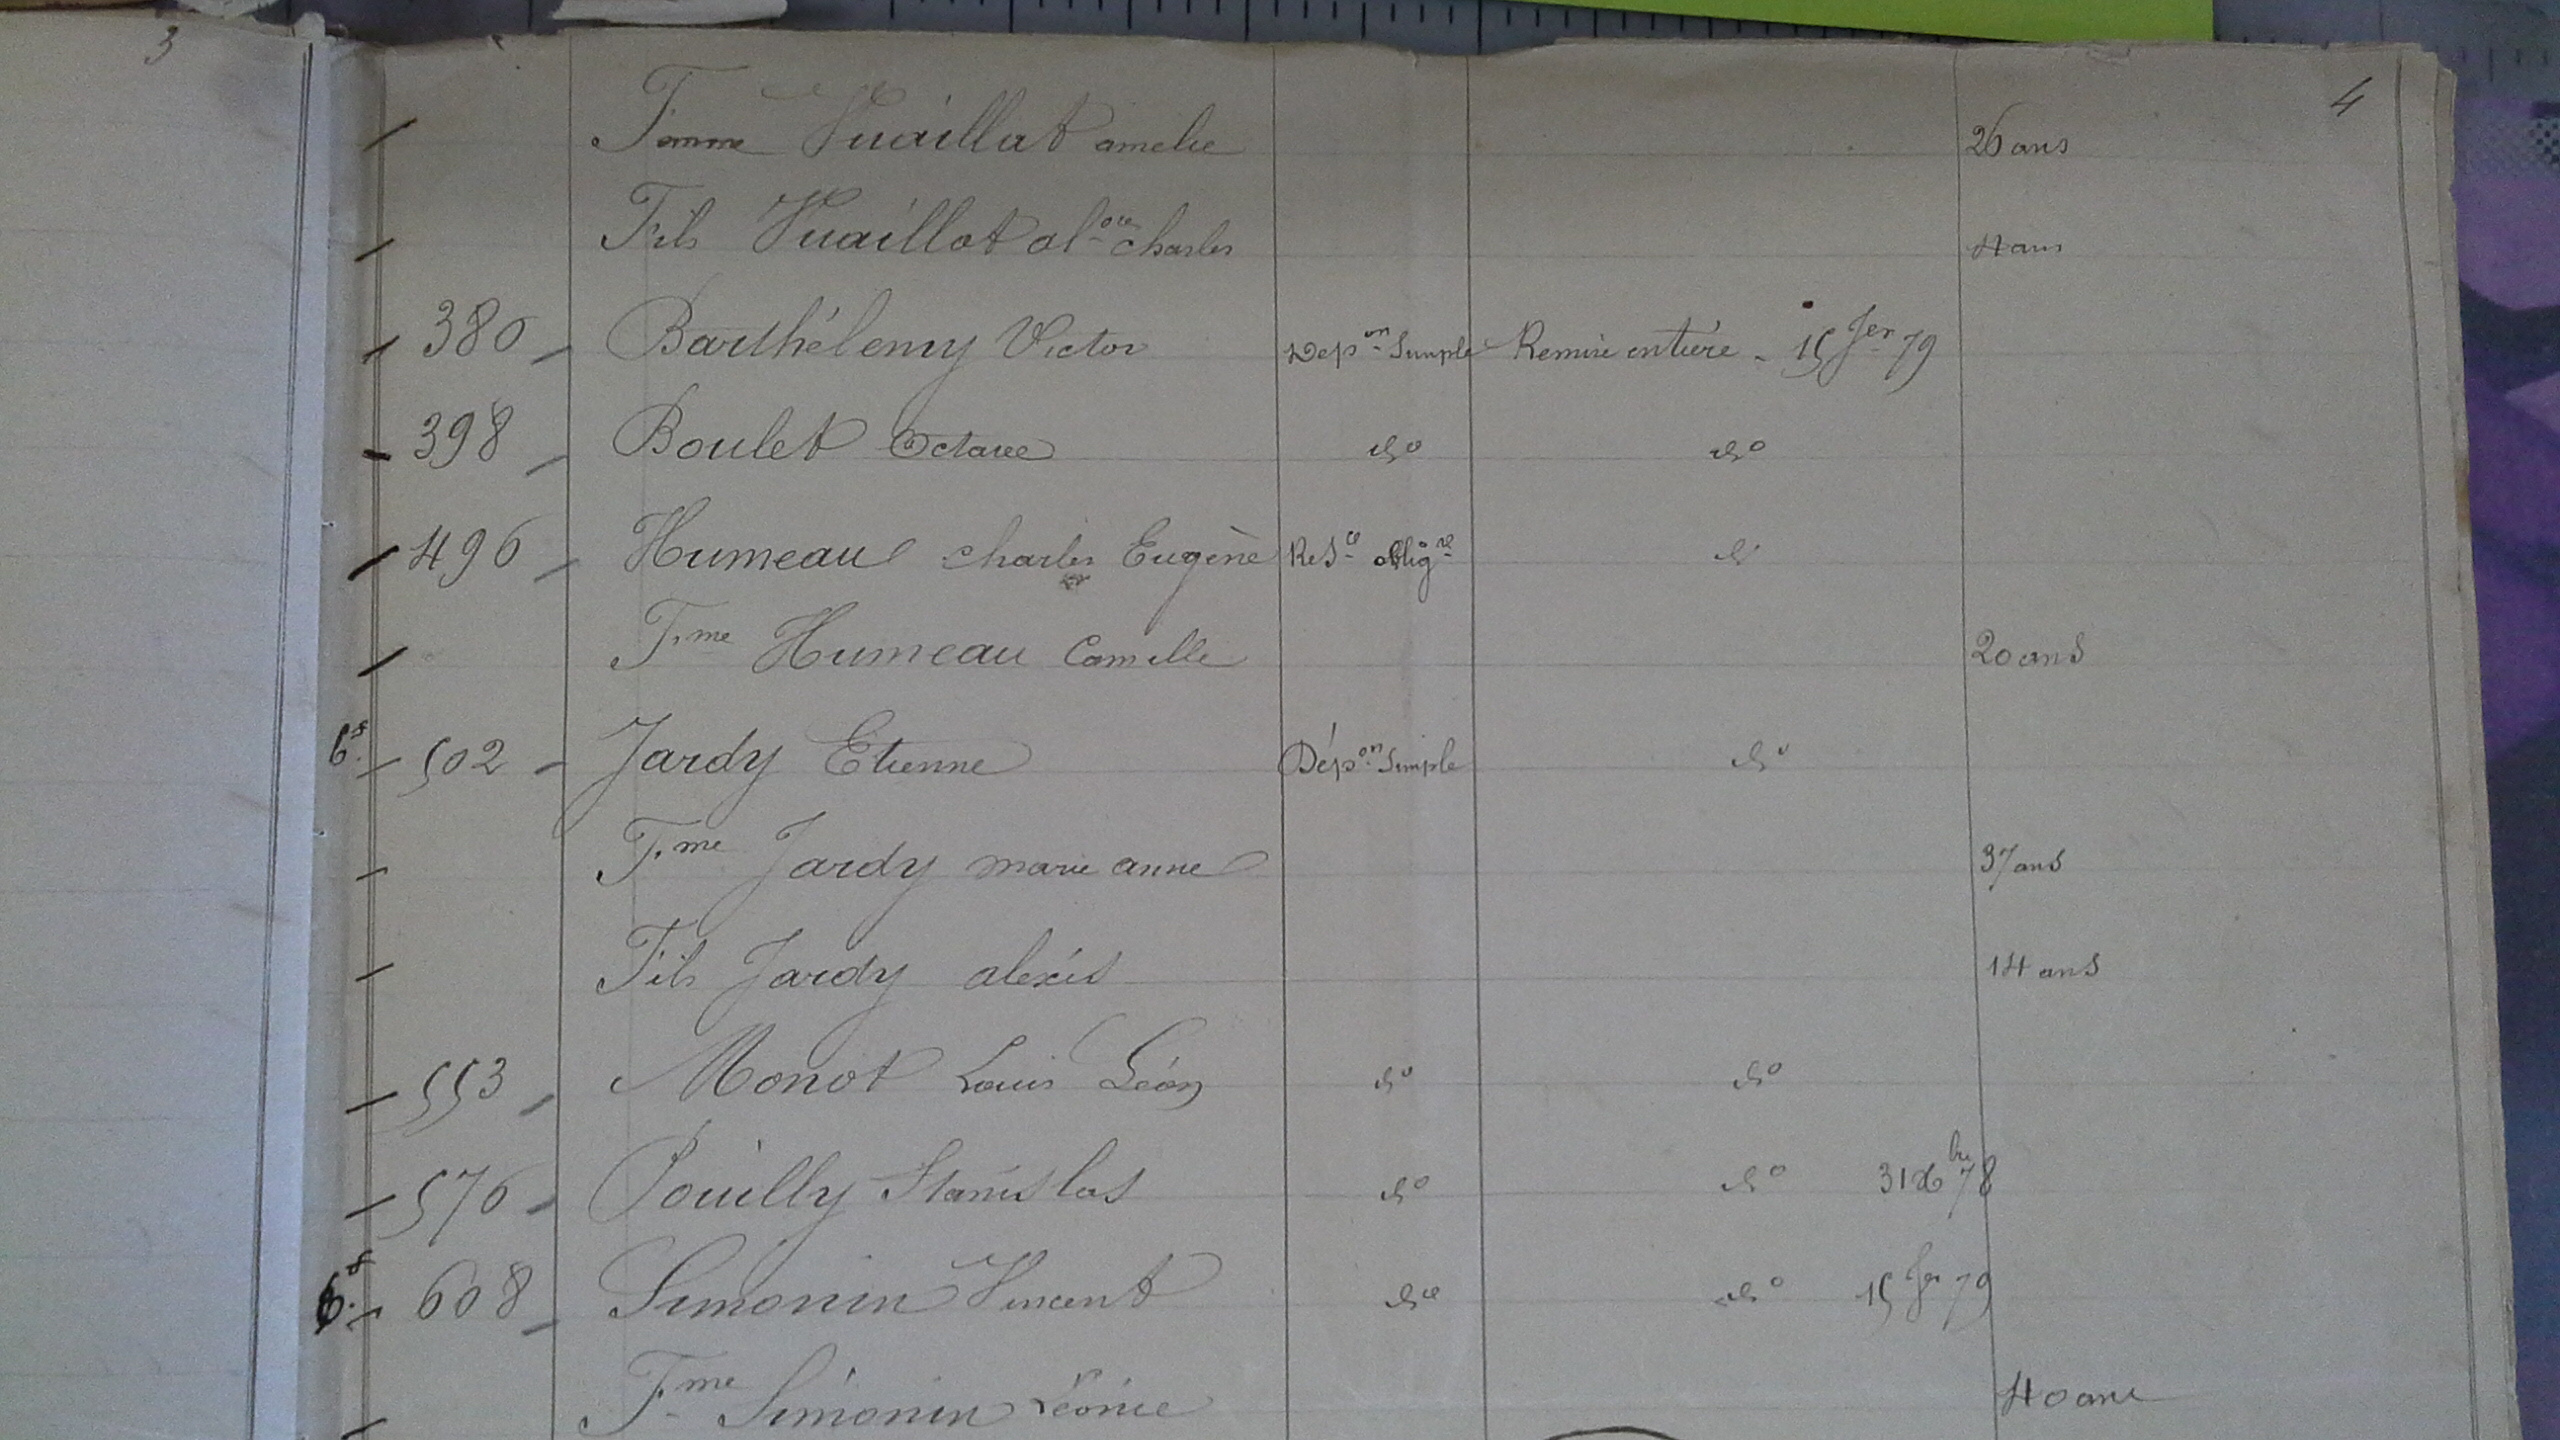 3
4
Femme Vuaillat amelie 26 ans
Fils Vuaillat al^dre charles 4 ans
380 Barthélemy Victor Dep^on Simple Remise entière - 15 J^er 79
398 Boulet Octave d° d°
496 Humeau charles Eugène Res^ce oblig^re d°
F^me Humeau Camille 20 ans
502 Jardy Etienne Dép^on Simple d°
F^me Jardy marie anne 37 ans
Fils Jardy alexis 14 ans
553 Monot Louis Léon d° d°
576 Pouilly Stanislas d° d° 31 X^bre 78
608 Simonin Vincent d° d° 15 J^er 79
F^me Simonin Léonie 40 ans